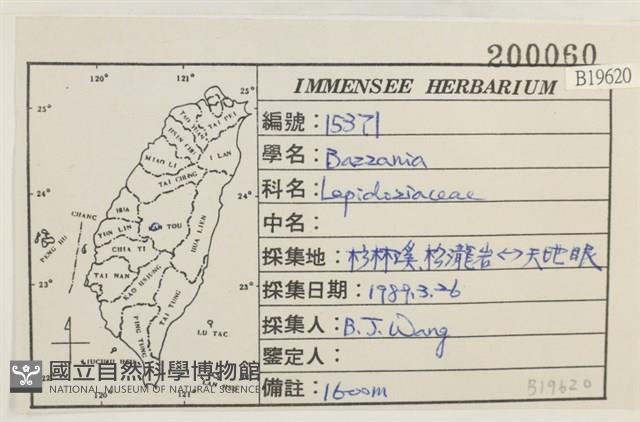 200060
B19620
IMMENSEE HERBARIUM
編號：15371
學名：Bazzania
科名：Lepidoziaceae
中名：
採集地：杉林溪．松瀧岩↔天地眼
採集日期：1989.3.26
採集人：B.J.Wang
鑒定人：
備註：1600m
B19620
120° 121°
25° 25°
24° 24°
23° 23°
120° 121°
TAI PEI
I LAN
MIAO LI
TAI CHUNG
CHANG
HUA
NAN TOU
HUA LIEN
YUN LIN
PENG HU
CHIA YI
TAI NAN
KAO HSIUNG
TAI TUNG
PING TUNG
LU TAO
LIUCHIU HSU
LAN HSU
國立自然科學博物館
NATIONAL MUSEUM OF NATURAL SCIENCE